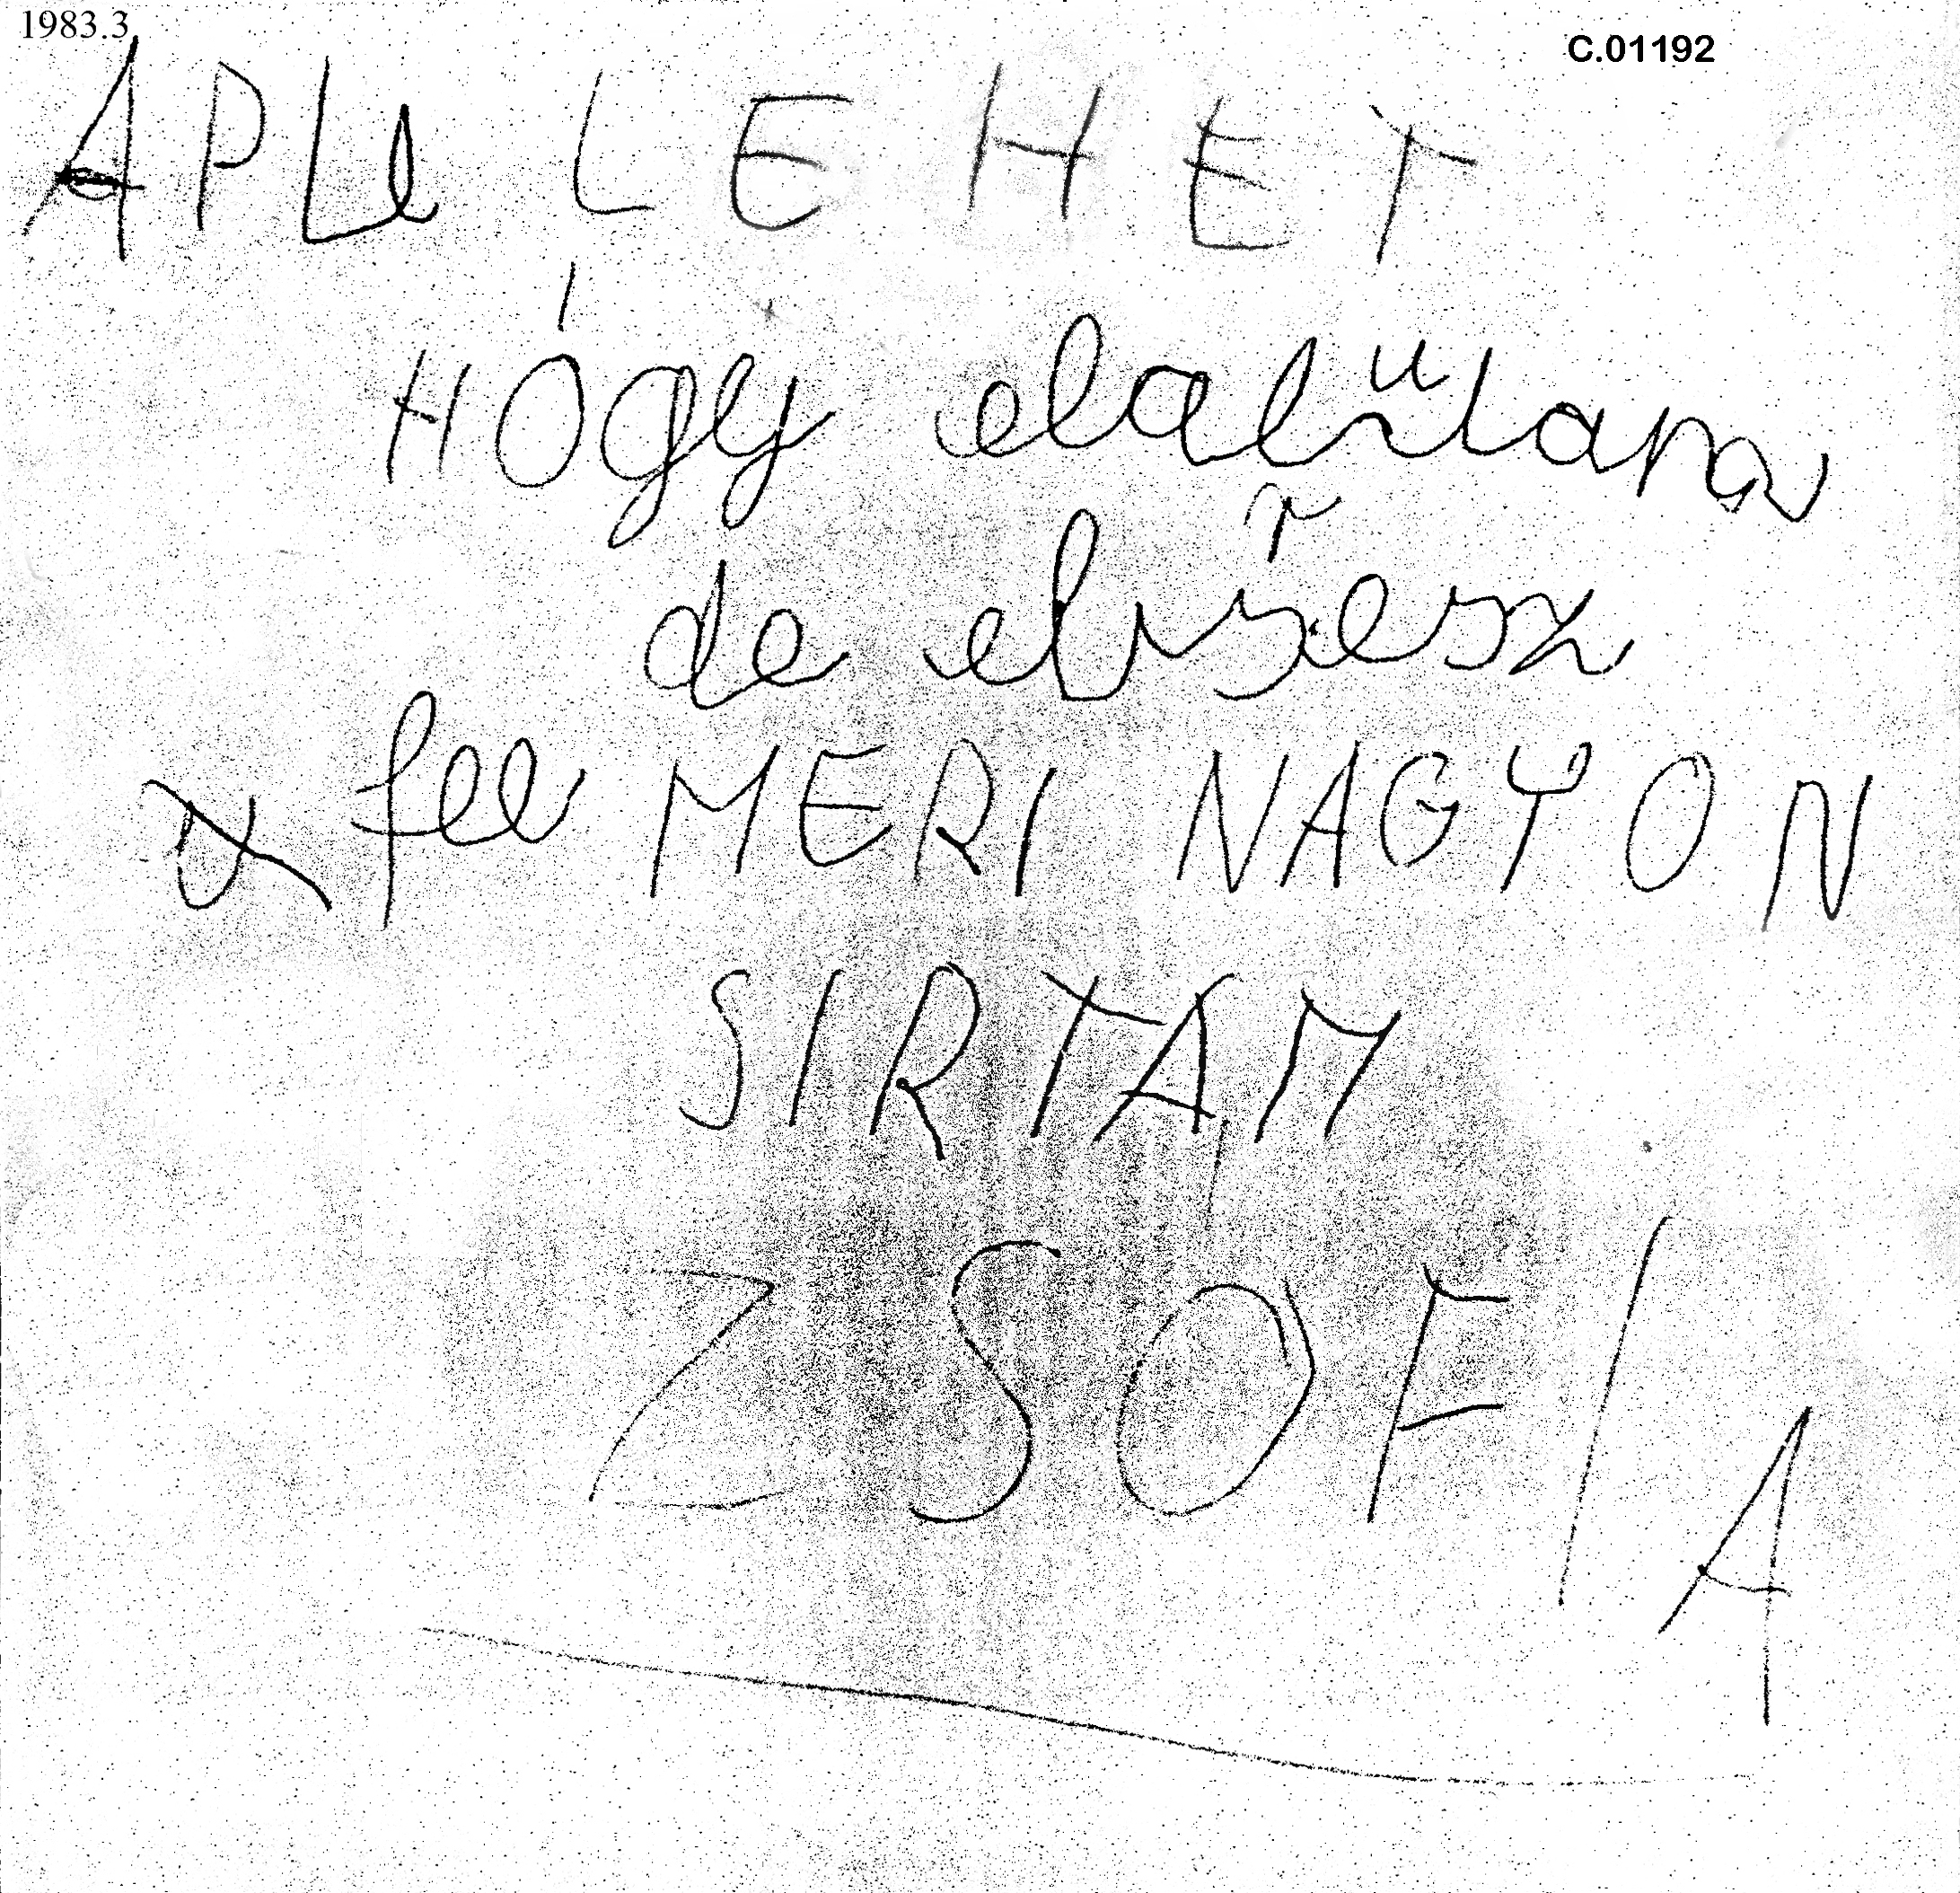 1983.3.
C.01192
APU LEHET
HÓgy elalutam
de ebresz
fel MERI NAGYON
SIRTAM
ZSOFIA